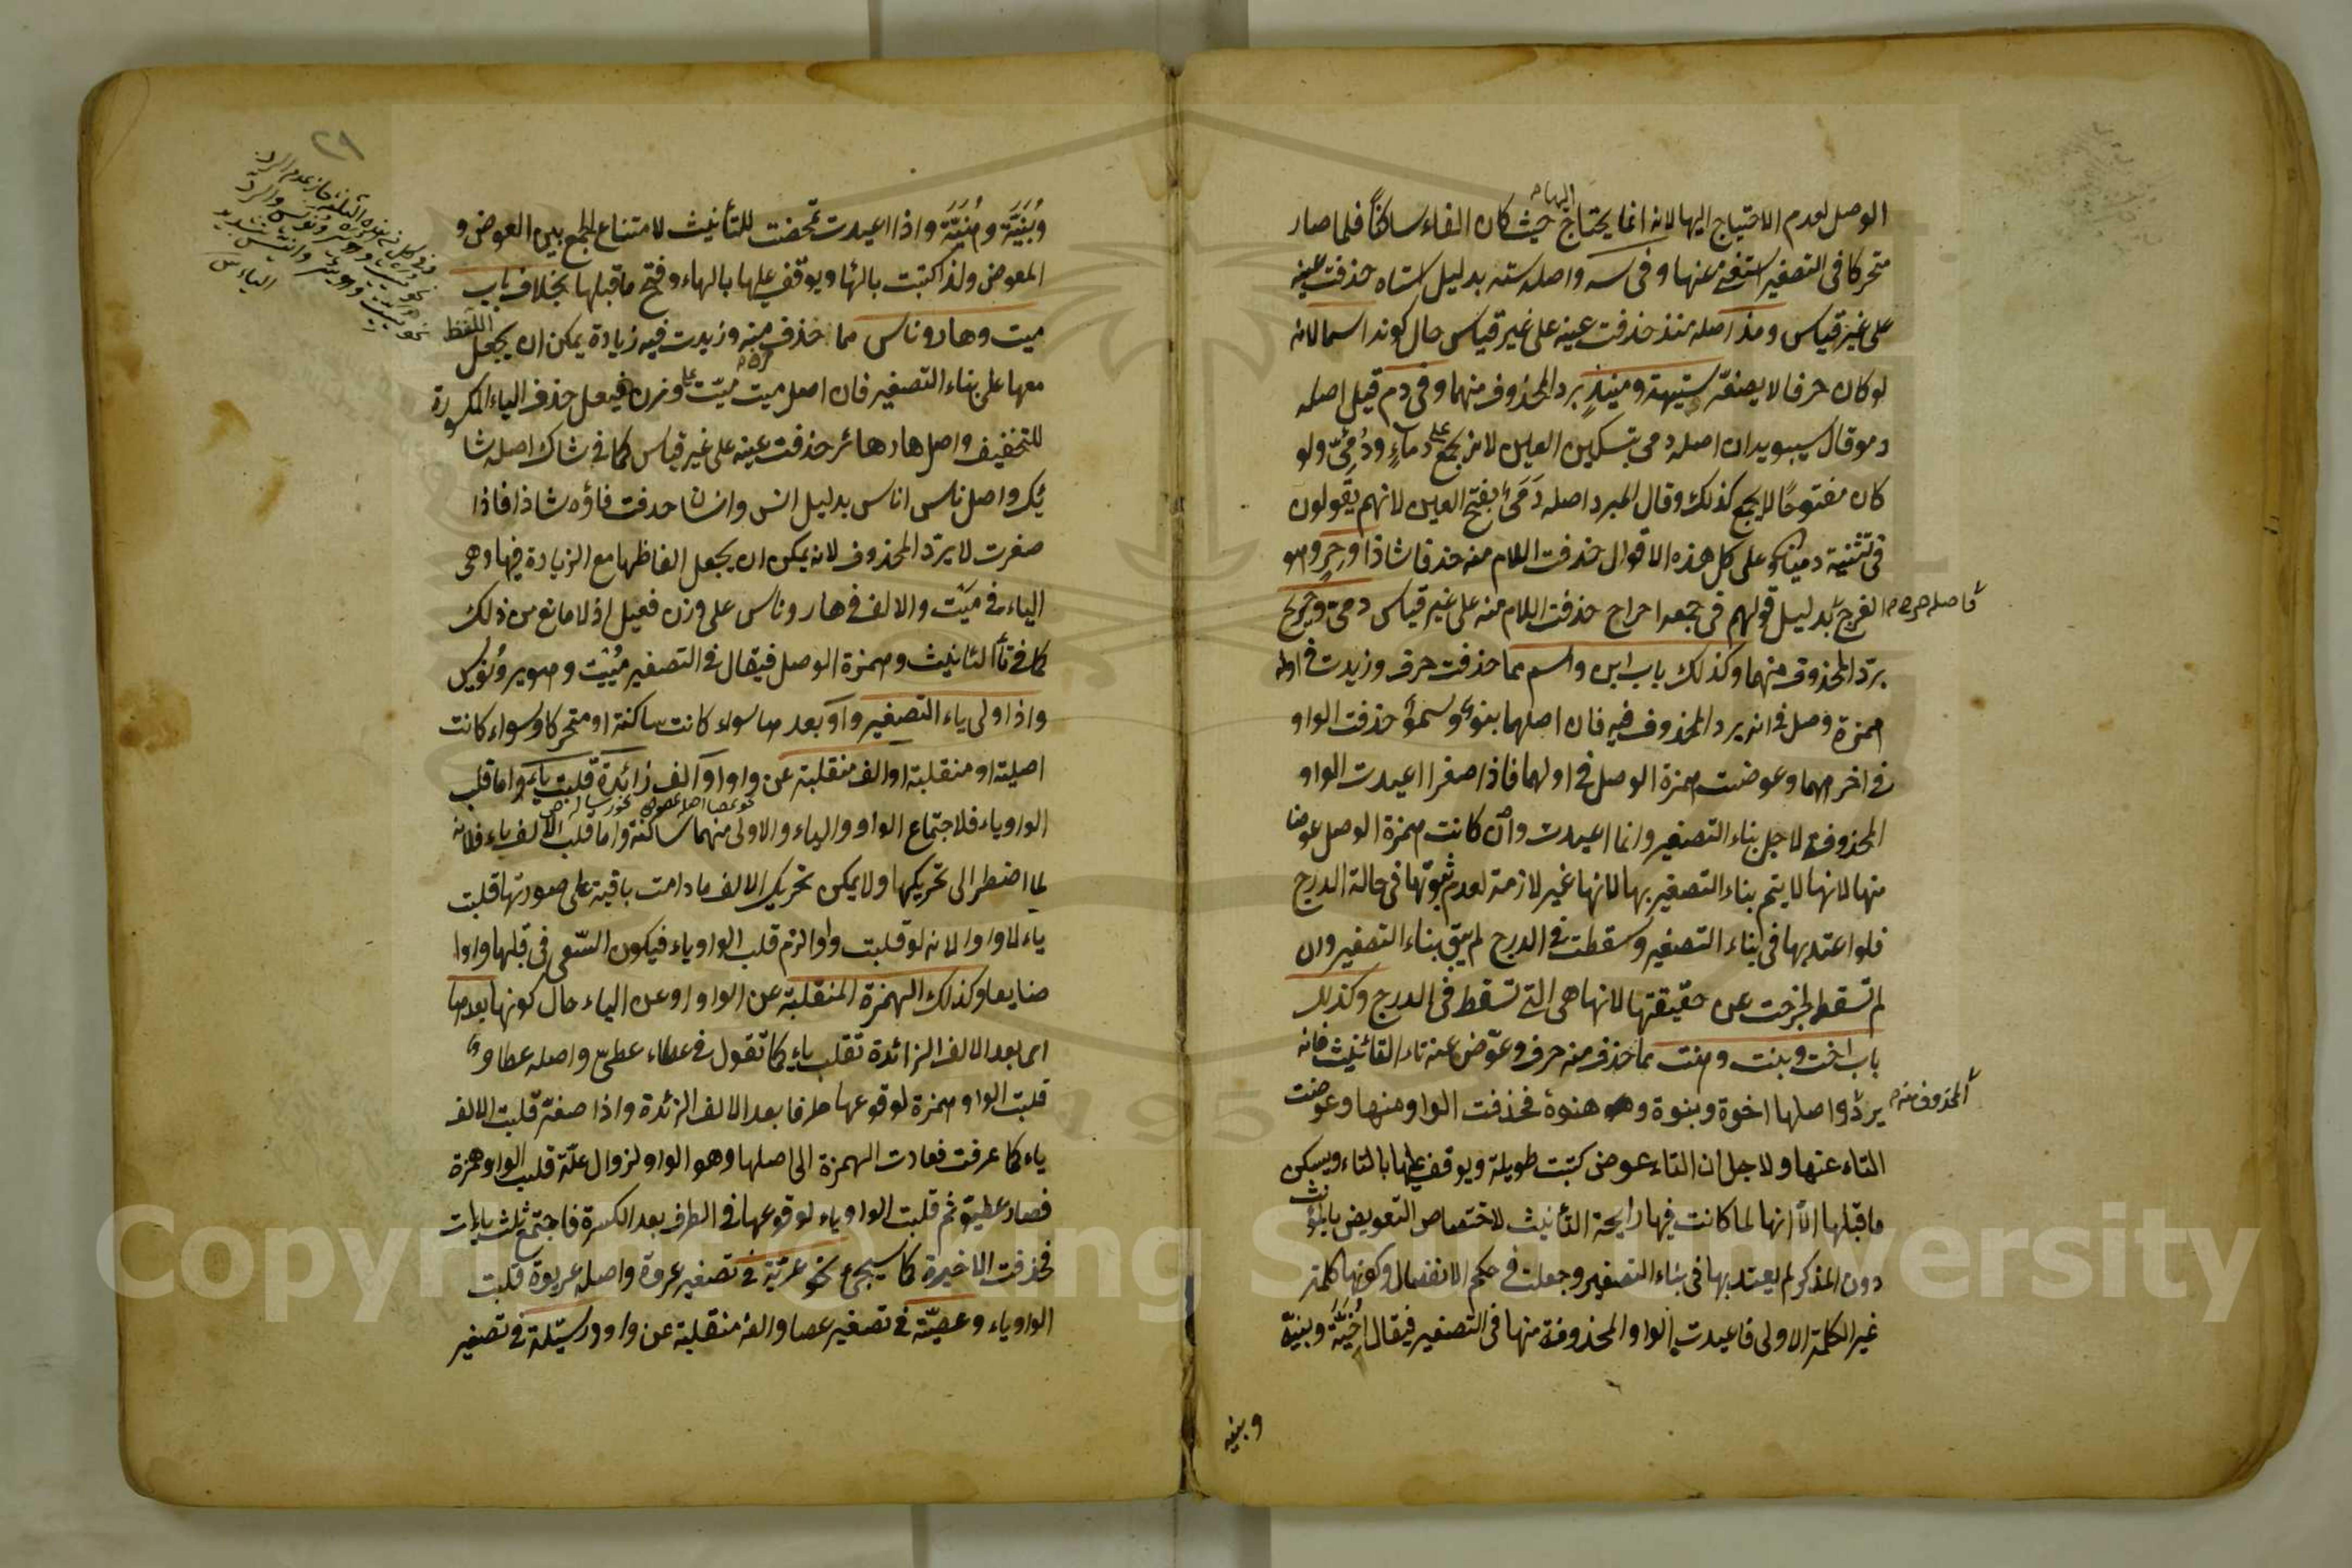 الوصل لعدم الاحتياج اليها لانه انما يحتاج اليها حيث كان الفاء ساكناً فلما صار
متحركا في التصغير استغنى عنها وفي سه واصله سته بدليل استاه حذفت عينه
على غير قياس ومذ اصله منذ حذفت عينه على غير قياس حال كونه اسما لانه
لو كان حرفا لا يصغّر ستيهة ومنيذ برد المحذوف منهما وفي دم قيل اصله
دمو قال سيبويه ان اصله دمي بتسكين العين لانه يجمع على دماءٍ ودُمِيّ ولو
كان مفتوحًا لا يجمع كذلك وقال المبرد اصله دَمَيٌ بفتح العين لانهم يقولون
في تثنيته دميان وعلى كل هذه الاقوال حذفت اللام منه حذفا شاذا وحِرٍ وهو
الفرج بدليل قولهم في جمعه احراح حذفت اللام منه على غير قياس دميّ وحريح
برد المحذوف منهما وكذلك باب ابن واسم مما حذفت حرف وزيدت في اوله
همزة وصل في انه يرد المحذوف فيه فان اصلهما بنو وسمو حذفت الواو
في اخرهما وعوضت همزة الوصل في اولهما فاذا صغرا اعيدت الواو
المحذوفة لاجل بناء التصغير وانما اعيدت وان كانت همزة الوصل عوضا
منها لانها لا يتم بناء التصغير بها لانها غير لازمة لعدم ثبوتها في حالة الدرج
فلو اعتد بها في بناء التصغير وسقطت في الدرج لم يبق بناء التصغير وان
لم تسقط لخرجت عن حقيقتها لانها هي التي تسقط في الدرج وكذلك
باب اخت وبنت وهنت مما حذف منه حرف وعوّض عنه تاء التأنيث فانه
يردّ واصلها اخوة وبنوة وهنوة فحذفت الواو منها وعوضت
التاء عنها ولاجل ان التاء عوض كتبت طويلة ويوقف عليها بالتاء ويسكن
ما قبلها الا انها لما كانت فيها رايحة التأنيث لاختصاص التعويض بالمؤنث
دون المذكر لم يعتد بها في بناء التصغير وجعلت في حكم الانفصال وكونها كلمة
غير الكلمة الاولى فاعيدت الواو المحذوفة منها في التصغير فيقال اُخَيَّة وبنيّة
اصله حرح
المحذوف منه
وبنيه
٢٩
وبُنَيَّة وهُنَيَّة واذا اعيدت تمحضت للتأنيث لامتناع الجمع بين العوض و
المعوض ولذا كتبت بالهاء ويوقف عليها بالهاء وفتح ما قبلها بخلاف باب
ميت وهار وناس مما حذف منه وزيدت فيه زيادة يمكن ان يجعل اللفظ
معها على بناء التصغير فان اصل ميت ميّت على وزن فيعل حذف الياء المكسورة
للتخفيف واصل هار هائر حذفت عينه على غير قياس كما في شاك اصله شا
ئك واصل ناس اناس بدليل انس وانسان حذفت فاؤه شاذا فاذا
صغرت لا يردّ المحذوف لانه يمكن ان يجعل الفاظها مع الزيادة فيها وهي
الياء في ميّت والالف في هار وناس على وزن فعيل اذ لا مانع من ذلك
كما في تأ التأنيث وهمزة الوصل فيقال في التصغير مُيَيْت وهوير ونُوَيس
واذا ولى ياء التصغير واو بعدها سواء كانت ساكنة او متحركا وسواء كانت
اصلية او منقلبة او الف منقلبة عن واو او الف زائدة قلبت ياء واما قلب
الواو ياء فلاجتماع الواو والياء والاولى منهما ساكنة واما قلب الالف ياء فلانه
لما اضطر الى تحريكها ولا يمكن تحريك الالف ما دامت باقية على صورتها قلبت
ياء لا واوا لانه لو قلبت واوا لزم قلب الواو ياء فيكون السّعي في قلبها واوا
ضايعا وكذلك الهمزة المنقلبة عن الواو او عن الياء حال كونها بعدها
اي بعد الالف الزائدة تقلب ياء كما تقول في عطاء عطيّ واصله عطاو
قلبت الواو همزة لوقوعها طرفا بعد الالف الزائدة واذا صغّر قلبت الالف
ياء كما عرفت فعادت الهمزة الى اصلها وهو الواو لزوال علّة قلب الواو همزة
فصار عطيو ثم قلبت الواو ياء لوقوعها في الطرف بعد الكسرة فاجتمع ثلث ياءات
فحذفت الاخيرة كما سيجيء نحو عريّة في تصغير عروة واصله عريوة قلبت
الواو ياء وعصيّة في تصغير عصا والفه منقلبة عن واو ورسيّلة في تصغير
Copyright © King Saud University